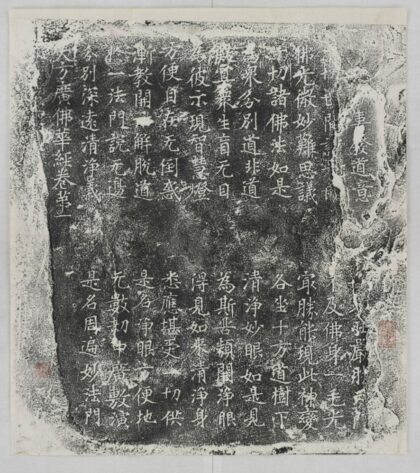 及佛身一毛光
佛光微妙難思議 最勝能現此神變
一切諸佛法如是 各坐十方道樹下
為衆分別道非道 清淨妙眼如是見
衆生盲无目 為斯苦類開淨眼
為彼示現智慧燈 得見如來清淨身
方便自在无倒惑 悉應堪受一切供
漸教開解脫道 是名淨眼方便地
一法門說无邊 无數劫中廣敷演
分別深遠清淨義 是名周遍妙法門
大方廣佛華經卷第一